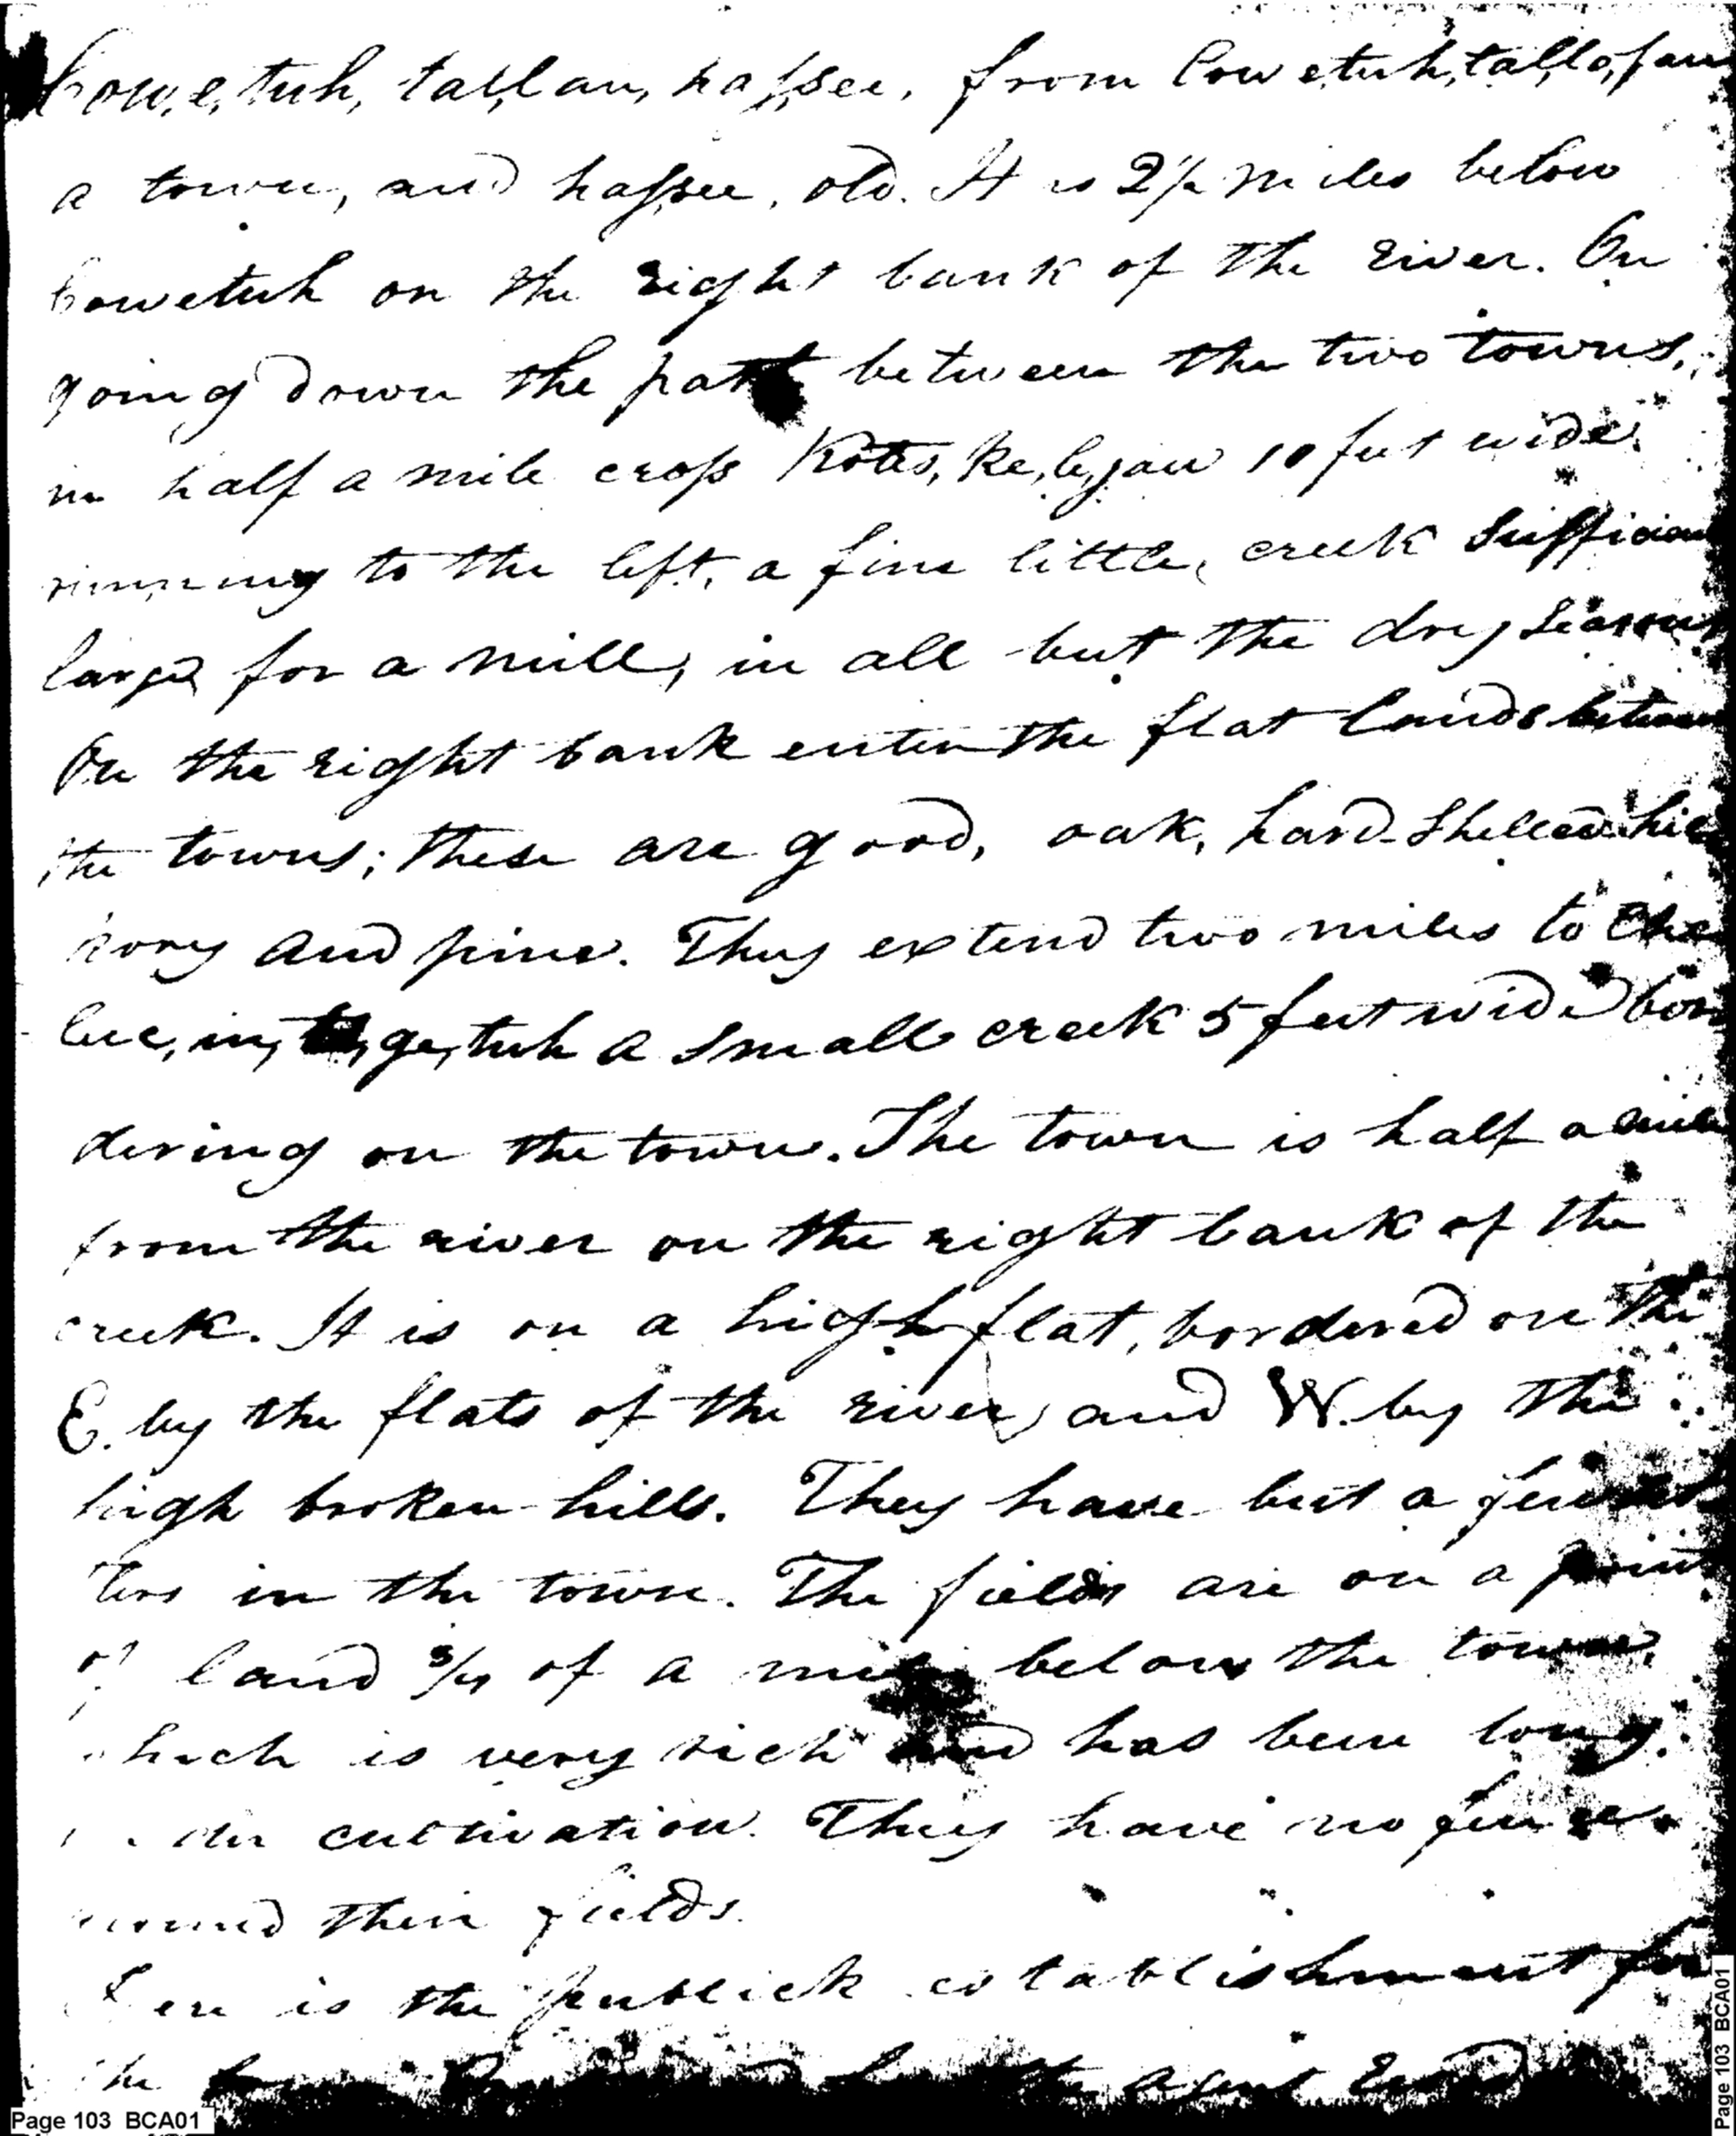 Cow,e,tuh, tal,lau, has,see, from Cowetuh, tal,lo,fau
a town, and hassee, old. It is 2 1/2 miles below
Cowetuh on the right bank of the river. On
going down the path between the two towns,
in half a mile cross Kotes,ke,le,jau 10 feet wide
running to the left, a fine little, creek sufficien
large for a mill, in all but the dry seasons
On the right bank enter the flat lands between
the towns; these are good, oak, hard-shelled hic
kory and pine. They extend two miles to Che
luc,in,te,ge,tuh a small creek 5 feet wide bor
dering on the town. The town is half a mile
from the river on the right bank of the
creek. It is on a high flat, bordered on the
E. by the flats of the river, and W. by the
high broken hills. They have but a few set
tlers in the town. The fields are on a point
of land 3/4 of a mile below the town,
which is very rich and has been long
under cultivation. They have no fence
around their fields.
Here is the publick establishment for
the by the agent
Page 103 BCA01
Page 103 BCA01